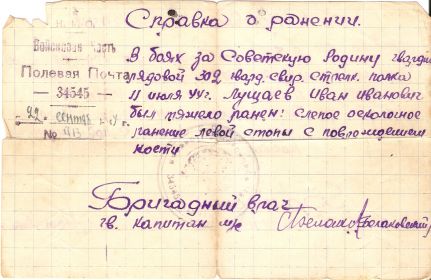 Справка о ранении.
Войсковая Часть
Полевая Почта
— 34545 —
22 сентяб
№
В боях за Советскую Родину гвардии
рядовой 302 гвард. стрелк. полка
11 июля 44г. Лущаев Иван Иванович
был тяжело ранен: слепое осколочное
ранение левой стопы с повреждением
кости
Бригадный врач
гв. капитан м/с